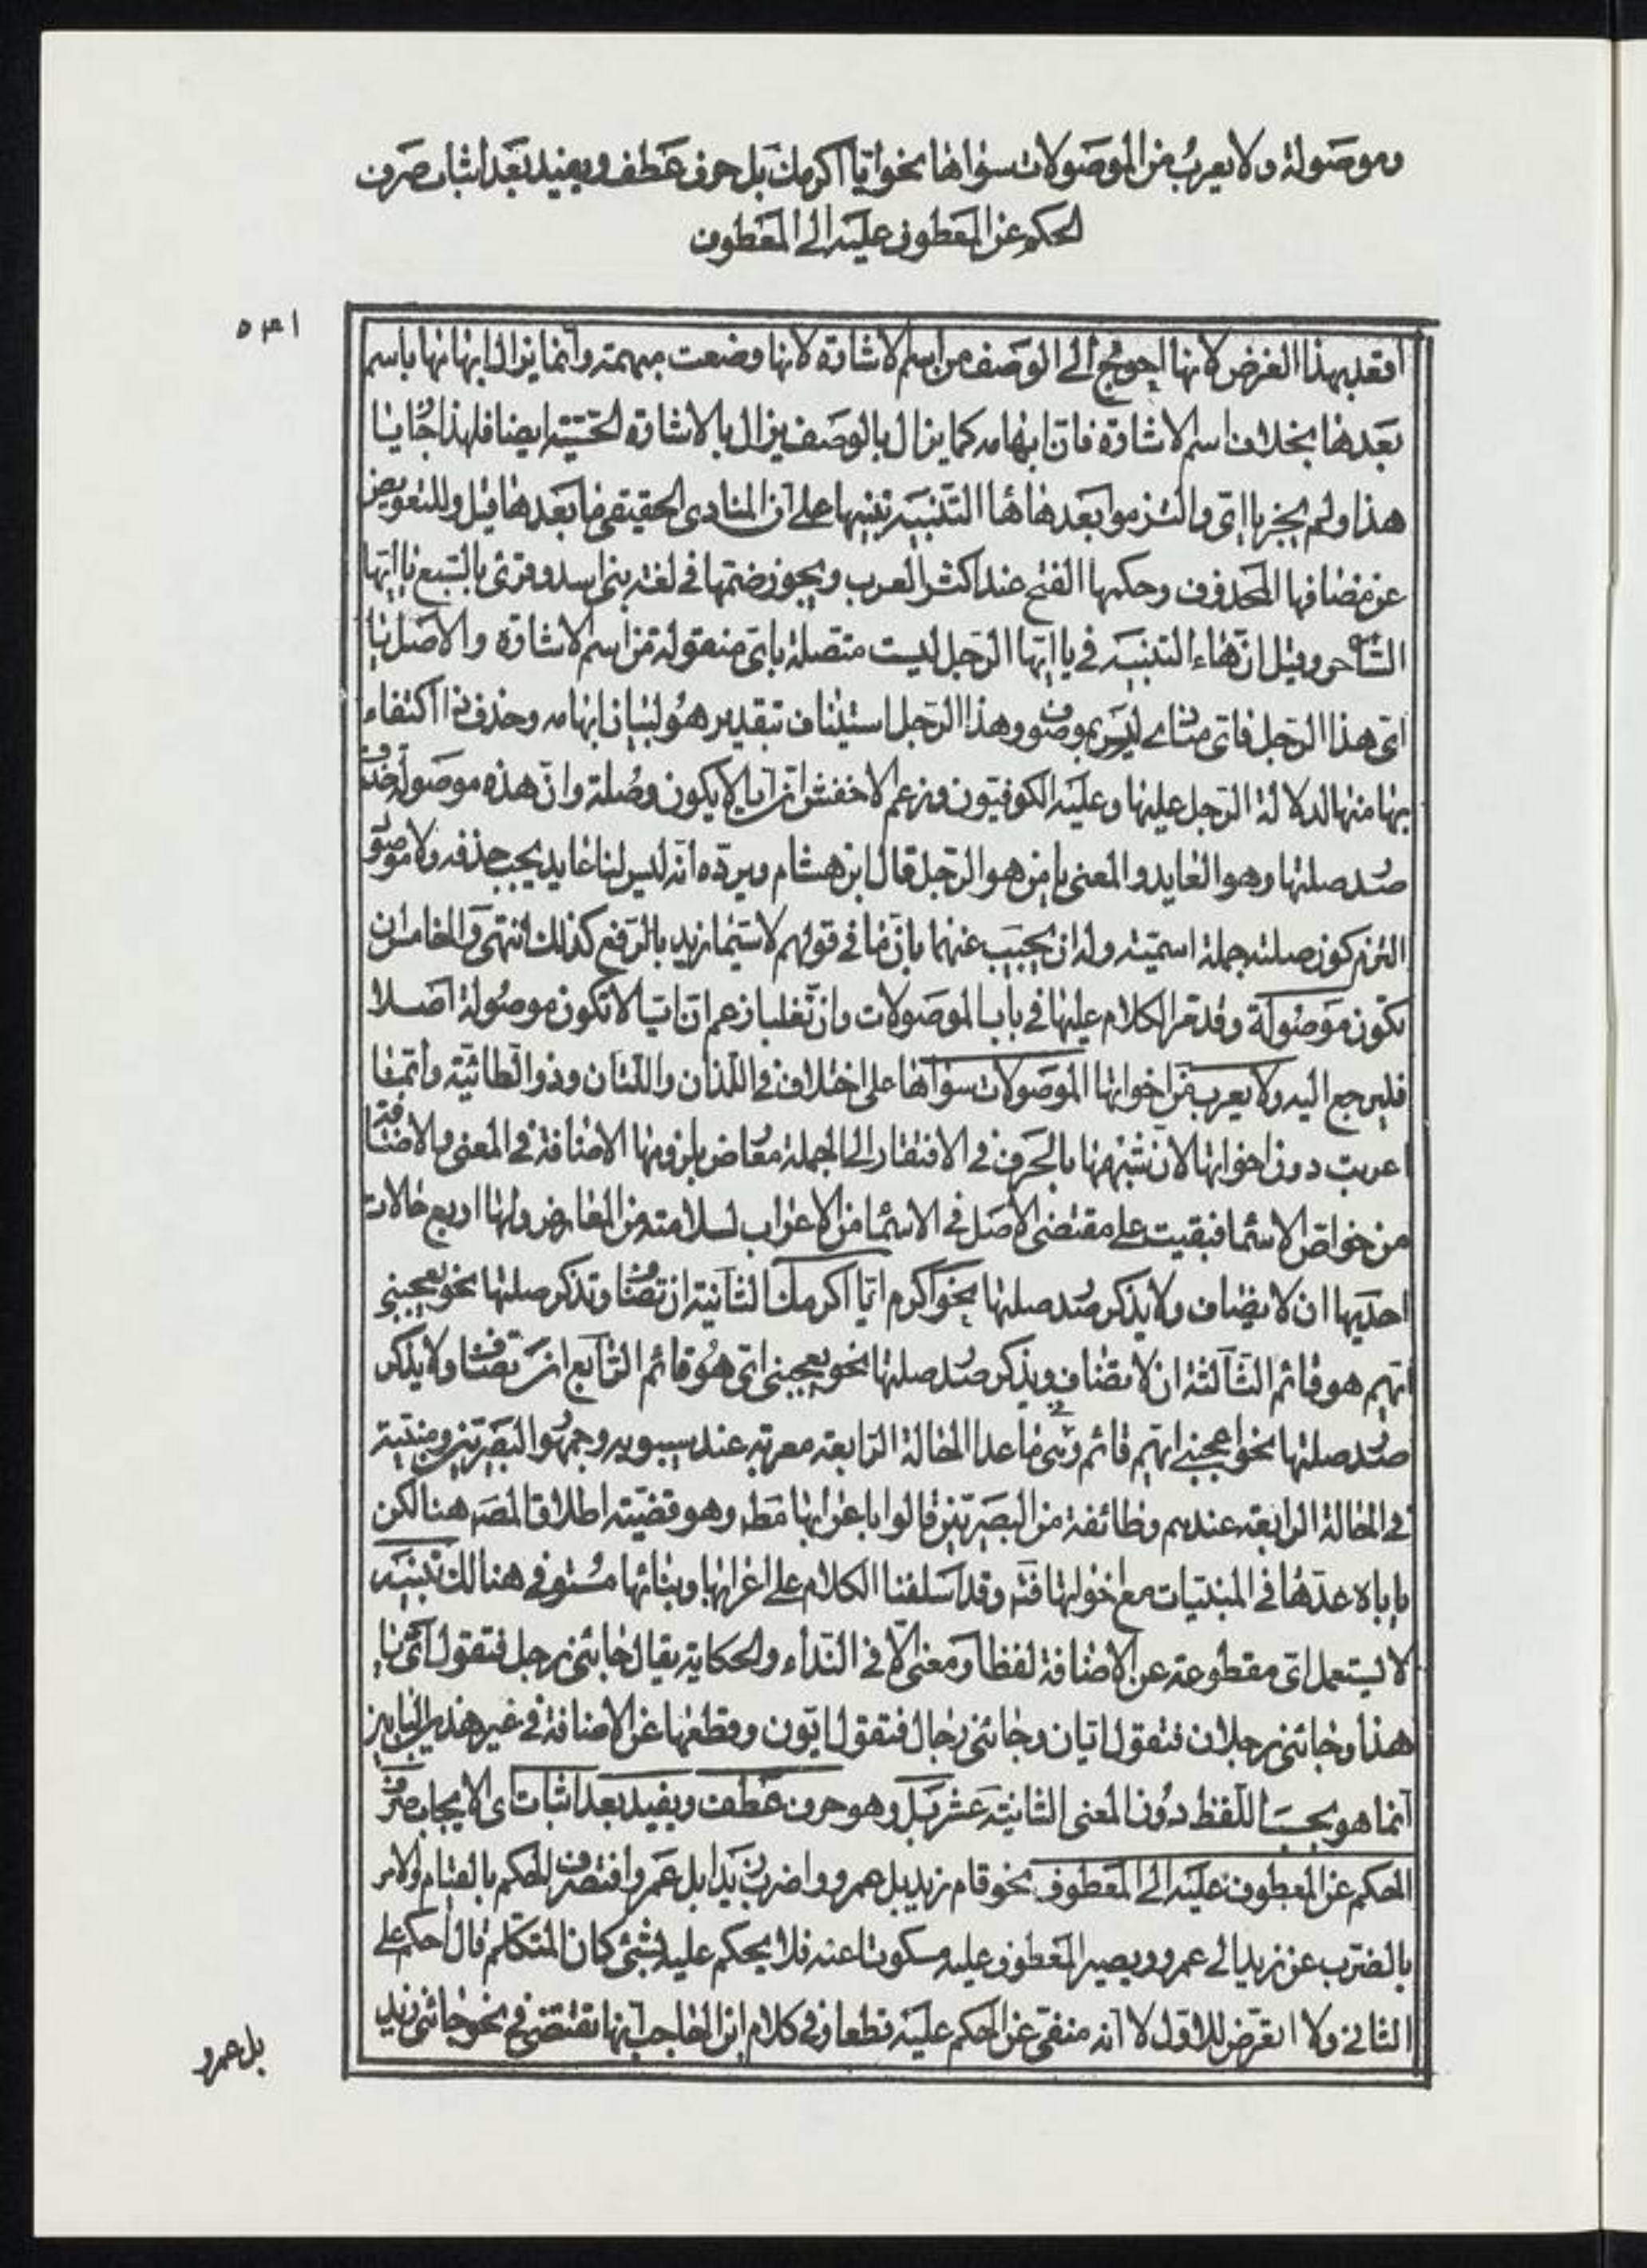 وموصولة ولا يعرب من الموصولات سواها نحو ايّا اكرمك بل حرف عطف ويفيد بعد اثبات صرف
الحكم عن المعطوف عليه الى المعطوف
٥٣١
اقعد بهذا الغرض لانها احوج الى الوصف من اسم الاشارة لانها وضعت مبهمة وانما يزال ابهامها باسم
بعدها بخلاف اسم الاشارة فان ابهامه كما يزال بالوصف يزال بالاشارة الحسّيّة ايضا فلهذا جاء يا
هذا ولم يجز يا ايّ والتزموا بعدها ها التنبيه تنبيها على ان المنادى الحقيقي ما بعدها قيل وللتعويض
عن مضافها المحذوف وحكمها الفتح عند اكثر العرب ويجوز ضمّها في لغة بني اسد وقرئ بالسبع يا ايّها
الساحر وقيل انّ هاء التنبيه في يا ايّها الرّجل ليست متّصلة بايّ منقولة من اسم الاشارة والاصل يا
ايّ هذا الرّجل فايّ منادى ليس بموصوف وهذا الرّجل استيناف بتقدير هو لبيان ابهامه وحذف ذا اكتفاء
بها منها لدلالة الرّجل عليها وعليه الكوفيّون وزعم الاخفش انّ ايا لا يكون وصلة وانّ هذه موصولة حذف
صدر صلتها وهو العايد والمعنى يا من هو الرّجل قال ابن هشام ويردّه انّه ليس لنا عايد يجب حذفه ولا موصول
التزم كون صلته جملة اسميّة وله ان يجيب عنهما بانّ ما في قولهم لا سيّما زيد بالرّفع كذلك انتهى والخامس ان
تكون موصولة وقد مرّ الكلام عليها في باب الموصولات وانّ ثعلبا زعم انّ ايّا لا تكون موصولة اصلا
فليرجع اليه ولا يعرب من اخواتها الموصولات سواها على اختلاف في اللّذان واللّتان وذو الطّائيّة وانّما
اعربت دون اخواتها لانّ شبهها بالحرف في الافتقار الى الجملة معارض بلزومها الاضافة في المعنى والاضافة
من خواصّ الاسماء فبقيت على مقتضى الاصل في الاسماء من الاعراب لسلامته من المعارض ولها اربع حالات
احديها ان لا يضاف ولا يذكر صدر صلتها نحو اكرم ايّا اكرمك الثانية ان تضاف وتذكر صلتها نحو يعجبني
ايّهم هو قائم الثالثة ان لا تضاف ويذكر صدر صلتها نحو يعجبني ايّ هو قائم الرّابع ان تضاف ولا يذكر
صدر صلتها نحو اعجبني ايّهم قائم وهي في ما عدا الحالة الرّابعة معربة عند سيبويه وجمهور البصريّين ومبنيّة
في الحالة الرابعة عندهم وطائفة من البصريّين قالوا باعرابها مط وهو قضيّة اطلاق المصـ هنا لكن
ياباه عدّها في المبنيّات مع اخواتها فتـ وقد اسلفنا الكلام على اعرابها وبنائها مستوفى هنالك تنبيه
لا يستعمل ايّ مقطوعة عن الاضافة لفظا ومعنى الّا في النّداء والحكاية يقال جائني رجل فتقول ايّ يا
هذا وجائني رجلان فتقول ايّان وجائني رجال فتقول ايّون وقطعها عن الاضافة في غير هذين البابين
انّما هو بحسب اللّفظ دون المعنى الثانية عشر بل وهو حرف عطف ويفيد بعد اثبات اي الايجاب صرف
الحكم عن المعطوف عليه الى المعطوف نحو قام زيد بل عمرو واضرب زيدا بل عمروا فتصرف الحكم بالقيام والامر
بالضرب عن زيد الى عمرو ويصير المعطوف عليه مسكوتا عنه فلا يحكم عليه بشئ كان المتكلّم قال احكم على
الثاني ولا اتعرّض للاوّل لا انه منفى عن الحكم عليه قطعا وفي كلام ابن الحاجب انها تقتضي في نحو جائني زيد
بل عمرو